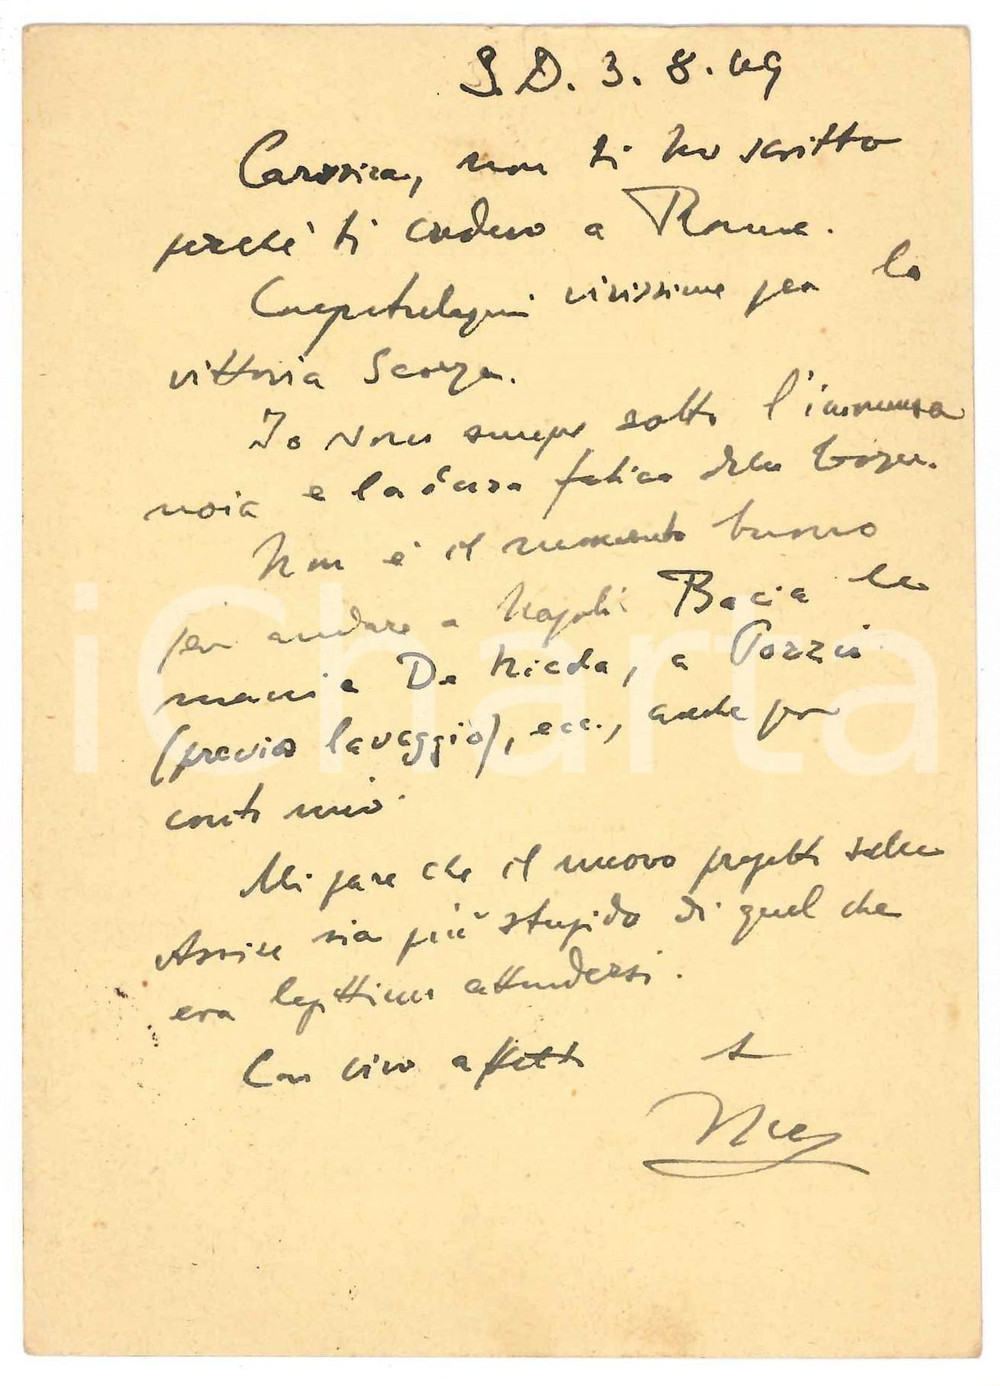 S.D. 3.8.49
Carissima, non ti ho scritto
perché ti credevo a Roma.
vivissime per la
vittoria Scorza.
Io sono sempre sotto l'immensa
noia e la dura fatica della
Non è il momento buono
per andare a Napoli. Bacia le
mani a De Nicola, a Porzio
(previo lavaggio), ecc., anche per
conto mio.
Mi pare che il nuovo progetto sulle
Assise sia più stupido di quel che
era legittimo attendersi.
Con vivo affetto
iCharta